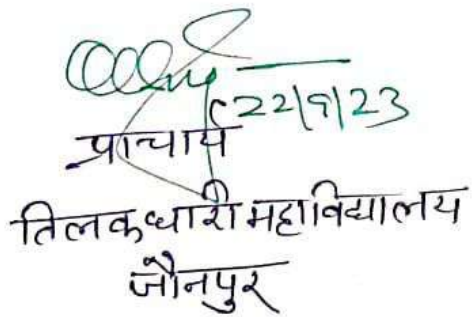 22/9/23
प्राचार्य
तिलकधारी महाविद्यालय
जौनपुर